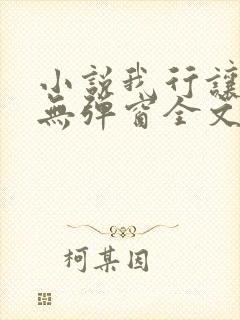 小說我行讓
無彈窗全文
柯某因